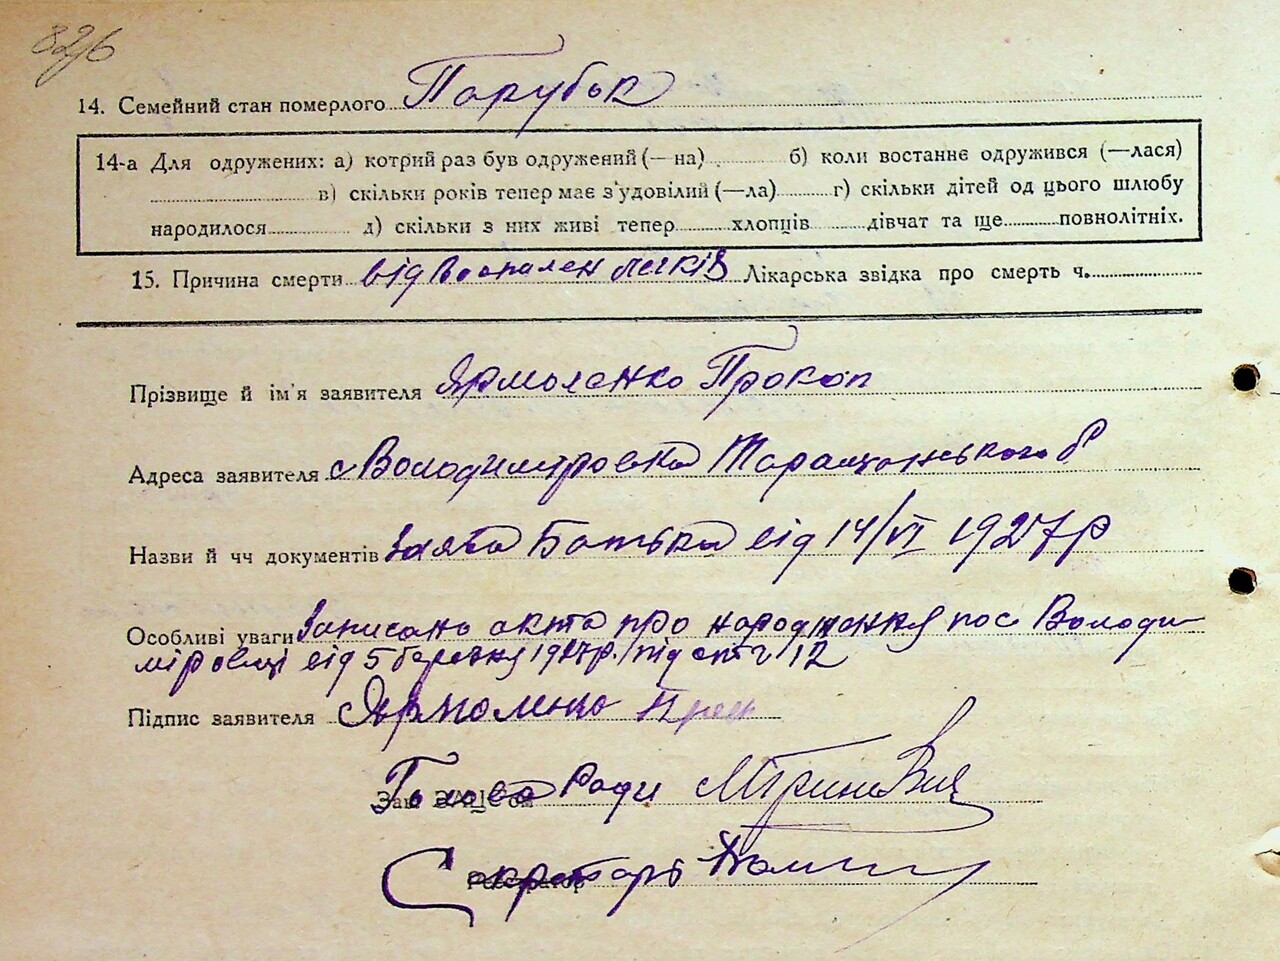 326
14. Семейний стан померлого Парубок
14-а Для одружених: а) котрий раз був одружений (—на) б) коли востаннє одружився (—лася)
в) скільки років тепер має з'удовілий (—ла) г) скільки дітей од цього шлюбу
народилося д) скільки з них живі тепер хлопців дівчат та ще повнолітніх.
15. Причина смерти від Воспален легків Лікарська звідка про смерть ч.
Прізвище й ім'я заявителя Ярмоленко Прокоп
Адреса заявителя с Володимировка Таращанського р
Назви й чч документів Заява Батька від 14/VI 1927 р
Особливі уваги Записано акта про народження по с Володи
міровці від 5 березня 1927 р. під ст ч 12
Підпис заявителя Ярмоленко
Голова Ради
Секретарь